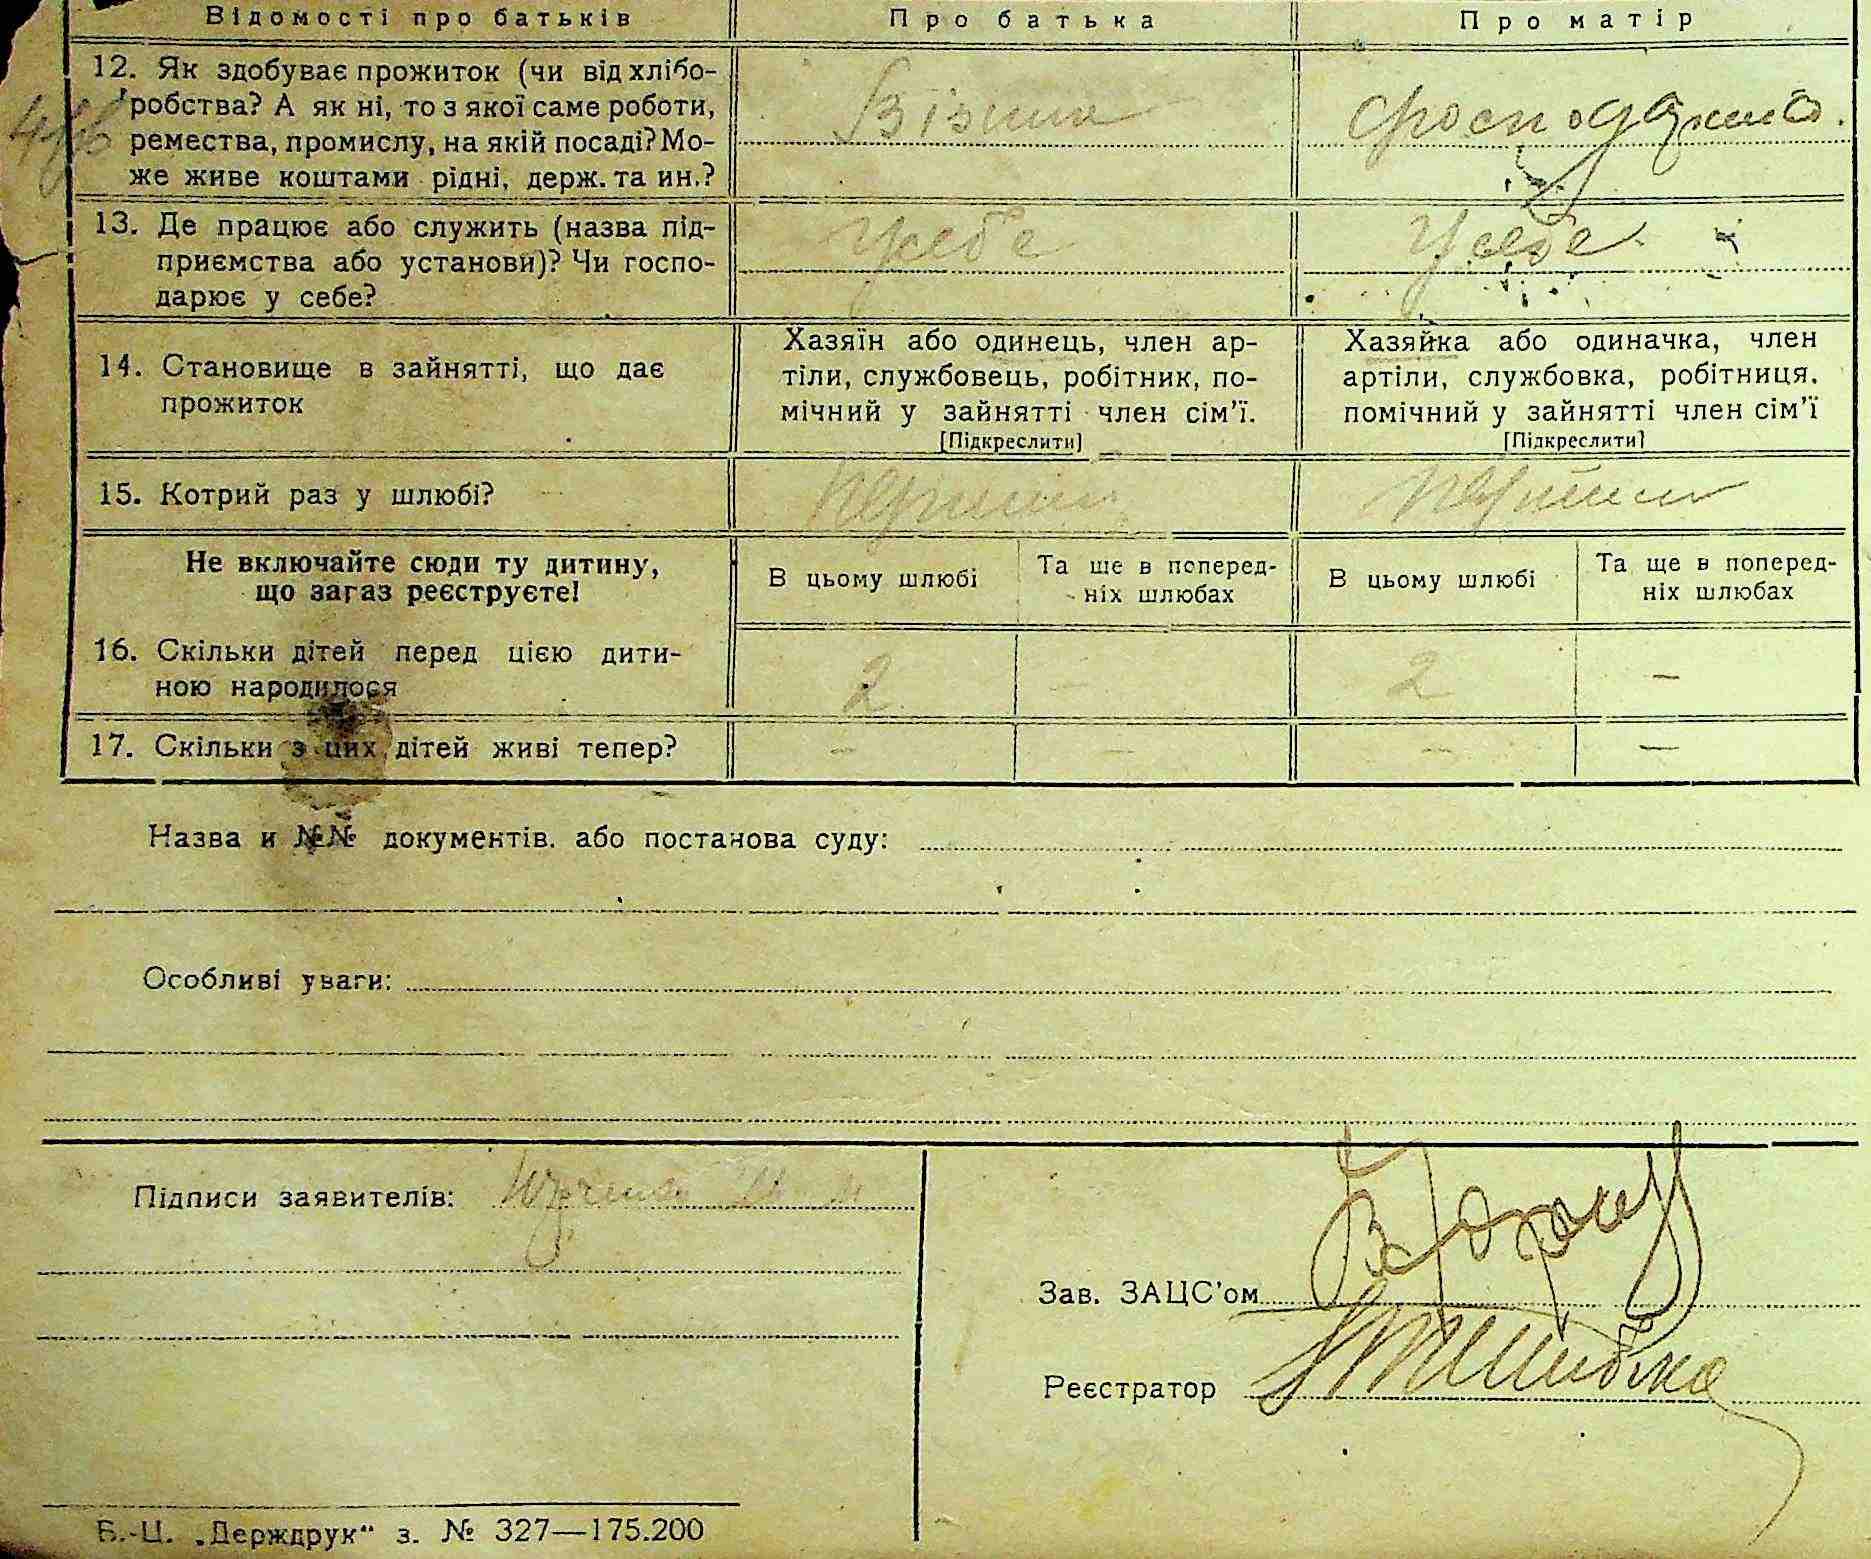 Відомості про батьків Про батька Про матір
12. Як здобуває прожиток (чи від хлібо-
робства? А як ні, то з якої саме роботи,
ремества, промислу, на якій посаді? Мо-
же живе коштами рідні, держ. та ин.?
Візник
13. Де працює або служить (назва під-
приємства або установи)? Чи госпо-
дарює у себе?
У себе
У себе
14. Становище в зайнятті, що дає
прожиток
Хазяїн або одинець, член ар-
тіли, службовець, робітник, по-
мічний у зайнятті член сім'ї.
[Підкреслити]
Хазяйка або одиначка, член
артіли, службовка, робітниця.
помічний у зайнятті член сім'ї
[Підкреслити]
15. Котрий раз у шлюбі?
Не включайте сюди ту дитину,
що загаз реєструєте!
В цьому шлюбі
Та ще в поперед-
ніх шлюбах
В цьому шлюбі
Та ще в поперед-
ніх шлюбах
16. Скільки дітей перед цією дити-
ною народилося
2 - 2 -
17. Скільки з цих дітей живі тепер?
- - - -
Назва и №№ документів. або постанова суду:
Особливі уваги:
Підписи заявителів:
Зав. ЗАЦС'ом
Реєстратор
Б.-Ц. „Держдрук“ з. № 327—175.200